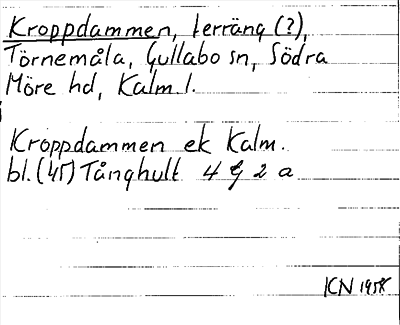 Kroppdammen, terräng (?),
Törnemåla, Gullabo sn, Södra
Möre hd, Kalm. l.
Kroppdammen ek Kalm.
bl. (45) Tånghult 4 G 2 a
KCN 1958